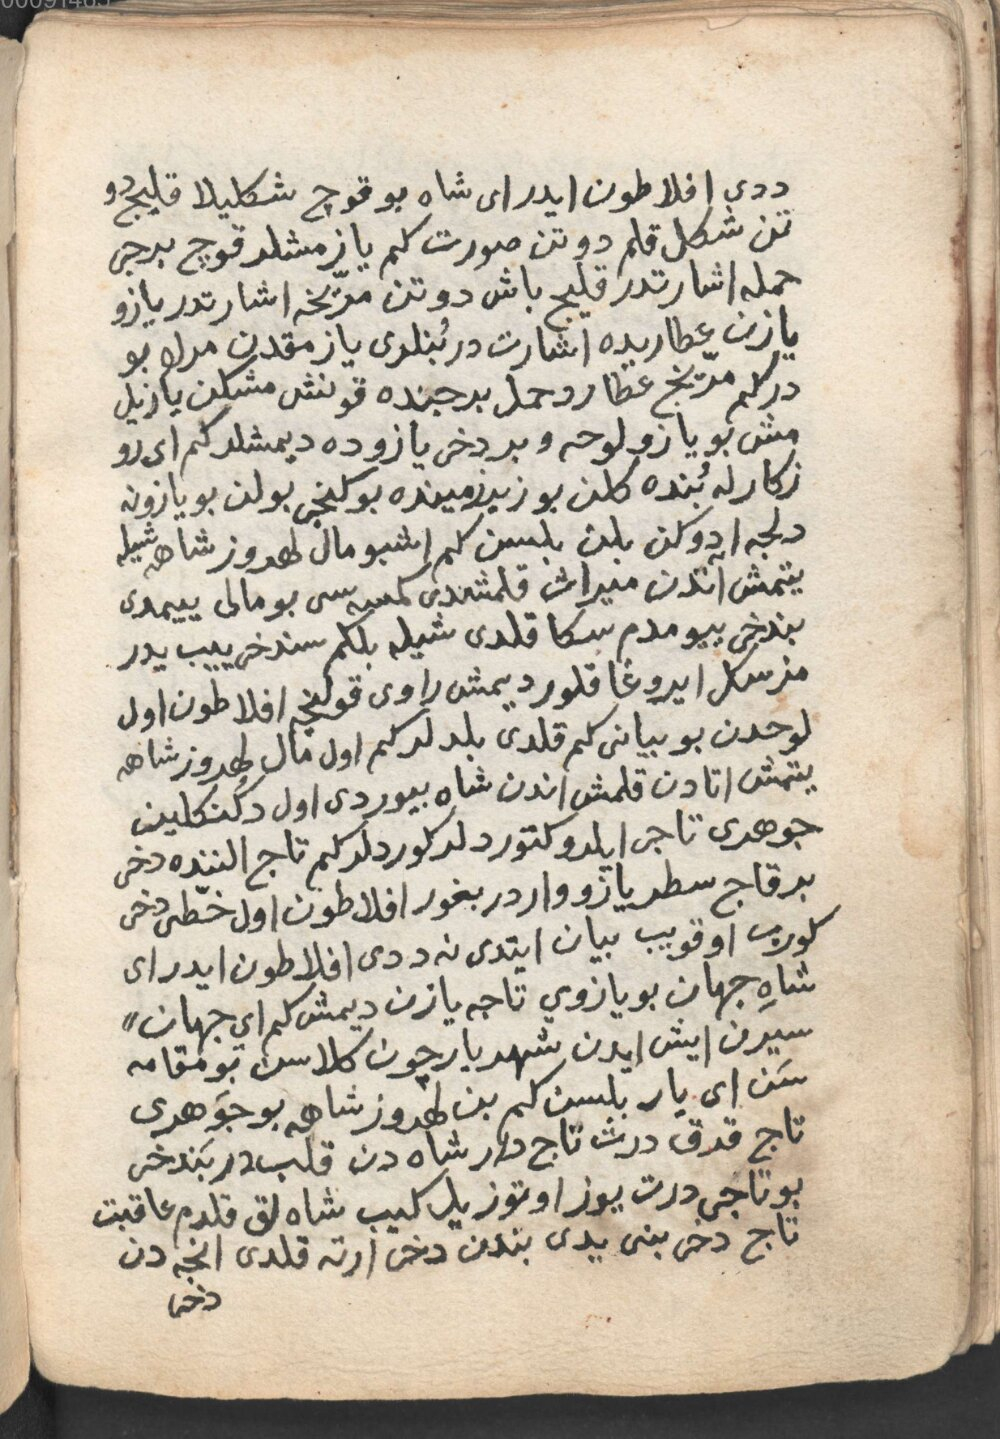 00091465
ددی افلاطون ایدر ای شاه بو قوچ شکلیلا قلیج دو
تن شکل قلم دوتن صورت کم یازمشلر قوچ برجی
حمله اشارتدر قلیج باش دوتن مرّیخه اشارتدر یازو
یازن عطاریده اشارت در بُنلری یازمقدن مراد بو
درکم مرّیخ عطارد و حمل برجنده قونش مشکن یازیل
مش بو یازو لوحه و بر دخی یازوده دیمشلر کم ای رو
زکارله بُنده کلن بو زیرزمینده بو کنجی بولن بو یازونه
دلجه ایدوکن بلن بلسن کم اشبو مال طهروز شاهه شیله
یتمش آتدن میراث قلمشدی کمسه سی بو مالی ییمدی
بندخی ییومدم سکا قلدی شیله بلکم سندخی ییب یدر
مزسکل ایروغا قلور دیمش راوی قولنجه افلاطون اول
لوحدن بو بیانی کم قلدی بلدلر کم اول مال طهروز شاهه
یتمش اتادن قلمش اندن شاه بیوردی اول دکنکلین
جوهری تاجی ایلرو کتوردلر کوردلر کم تاج النده دخی
بر قاج سطر یازو واردر بغور افلاطون اول خطّی دخی
کورب اوقویب بیان ایتدی نه ددی افلاطون ایدر ای
شاهِ جهان بو یازوی تاجه یازن دیمش کم ای جهان
سیرن ایش ایدن شهریار چون کلاسن بو مقامه
سَن ای یار بلسن کم بن طهروز شاهه بو جَوهری
تاج قدق درث تاج دار شاه دن قلب در بَندخی
بو تاجی درت یوز اوتوز ییل کیب شاه لق قلدم عاقبت
تاج دخی بنی یدی بندن دخی ارته قلدی انجه دن
دخی